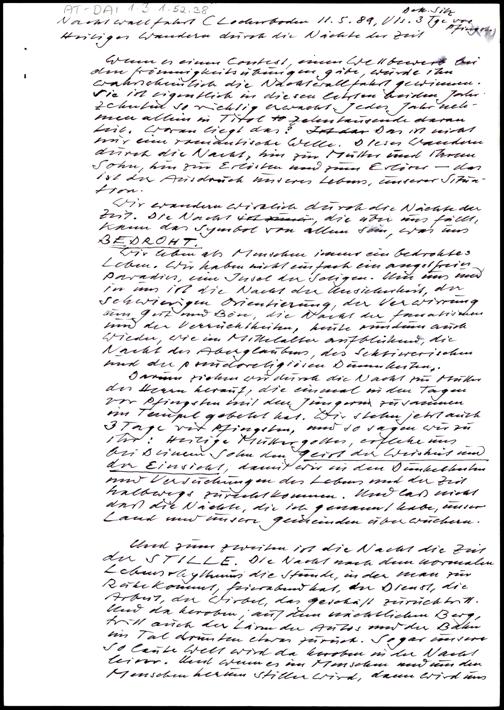 AT-DAI 1 3 1.52.28
Nachtwallfahrt (Locherboden 11.5.89, Vls. 3 Tge vor Pfingsten)
Heiliges Wandern durch die Nächte der Zeit
Wenn es einen Contest, einen Wettbewerb bei
den Frömmigkeitsübungen gäbe, würde ihn
wahrscheinlich die Nachtwallfahrt gewinnen.
Sie ist eigentlich in diesen letzten beiden Jahr-
zehnten so richtig erwacht. Jedes Jahr neh-
men allein in Tirol Zehntausende daran
teil. Woran liegt das? Das ist nicht
nur eine romantische Welle. Dieses Wandern
durch die Nacht, hin zur Mutter und ihrem
Sohn, hin zur Erlösten und zum Erlöser – das
ist der Ausdruck unseres Lebens, unserer Situa-
tion.
Wir wandern wirklich durch die Nächte der
Zeit. Die Nacht, die über uns fällt,
kann das Symbol von allem sein, was uns
BEDROHT.
Wir leben als Menschen immer ein bedrohtes
Leben. Wir haben nicht einfach ein angstfreies
Paradies, eine Insel der Seligen. Um uns und
in uns ist die Nacht der Unsicherheit, der
schwierigen Orientierung, der Verwirrung
um Gut und Böse, die Nacht der Fanatismen
und der Verrücktheiten, heute rundum auch
wieder, wie im Mittelalter aufblühend, die
Nacht des Aberglaubens, des Sektiererischen
und der pseudoreligiösen Dummheiten.
Darum ziehen wir durch die Nacht zur Mutter
des Herrn herauf, die einmal in den Tagen
vor Pfingsten mit den Jüngern zusammen
im Tempel gebetet hat. Wir stehen jetzt auch
3 Tage vor Pfingsten, und so sagen wir zu
ihr: Heilige Mutter Gottes, erflehe uns
bei Deinem Sohn den Geist der Weisheit und
der Einsicht, damit wir in den Dunkelheiten
und Versuchungen des Lebens und der Zeit
halbwegs zurechtkommen. Und laß nicht
daß die Nächte, die ich genannt habe, unser
Land und unsere Gemeinden überwuchern.
Und zum zweiten ist die Nacht die Zeit
der STILLE. Die Nacht nach dem normalen
Lebensrhythmus die Stunde, in der man zur
Ruhe kommt, Feierabend hat, der Dienst, die
Arbeit, der Wirbel, das Geschäft zurücktritt.
Und da heroben, auf dem nächtlichen Berg,
tritt auch der Lärm der Autos und der Bahn
im Tal drunten etwas zurück. Sogar unsere
so laute Welt wird da heroben in der Nacht
leiser. Und wenn es im Menschen und um den
Menschen herum stiller wird, dann wird uns